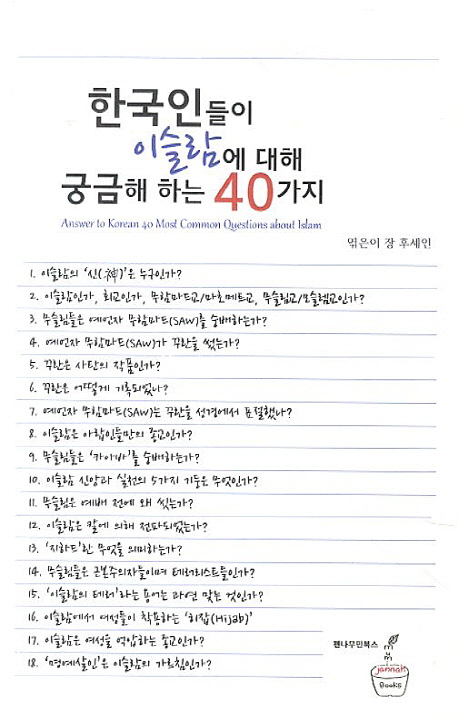 한국인들이
이슬람에 대해
궁금해 하는 40가지
Answer to Korean 40 Most Common Questions about Islam
엮은이 장 후세인
1. 이슬람의 '신(神)'은 누구인가?
2. 이슬람인가, 회교인가, 무함마드교/마호메트교, 무슬림교/모슬렘교인가?
3. 무슬림들은 예언자 무함마드(SAW)를 숭배하는가?
4. 예언자 무함마드(SAW)가 꾸란을 썼는가?
5. 꾸란은 사탄의 작품인가?
6. 꾸란은 어떻게 기록되었나?
7. 예언자 무함마드(SAW)는 꾸란을 성경에서 표절했나?
8. 이슬람은 아랍인들만의 종교인가?
9. 무슬림들은 '카아바'를 숭배하는가?
10. 이슬람 신앙과 실천의 5가지 기둥은 무엇인가?
11. 무슬림은 예배 전에 왜 씻는가?
12. 이슬람은 칼에 의해 전파되었는가?
13. '지하드'란 무엇을 의미하는가?
14. 무슬림들은 근본주의자들이며 테러리스트들인가?
15. '이슬람의 테러'라는 용어는 과연 맞는 것인가?
16. 이슬람에서 여성들이 착용하는 '히잡(Hijab)'
17. 이슬람은 여성을 억압하는 종교인가?
18. '명예살인'은 이슬람의 가르침인가?
젠나무민북스
jannah
Books